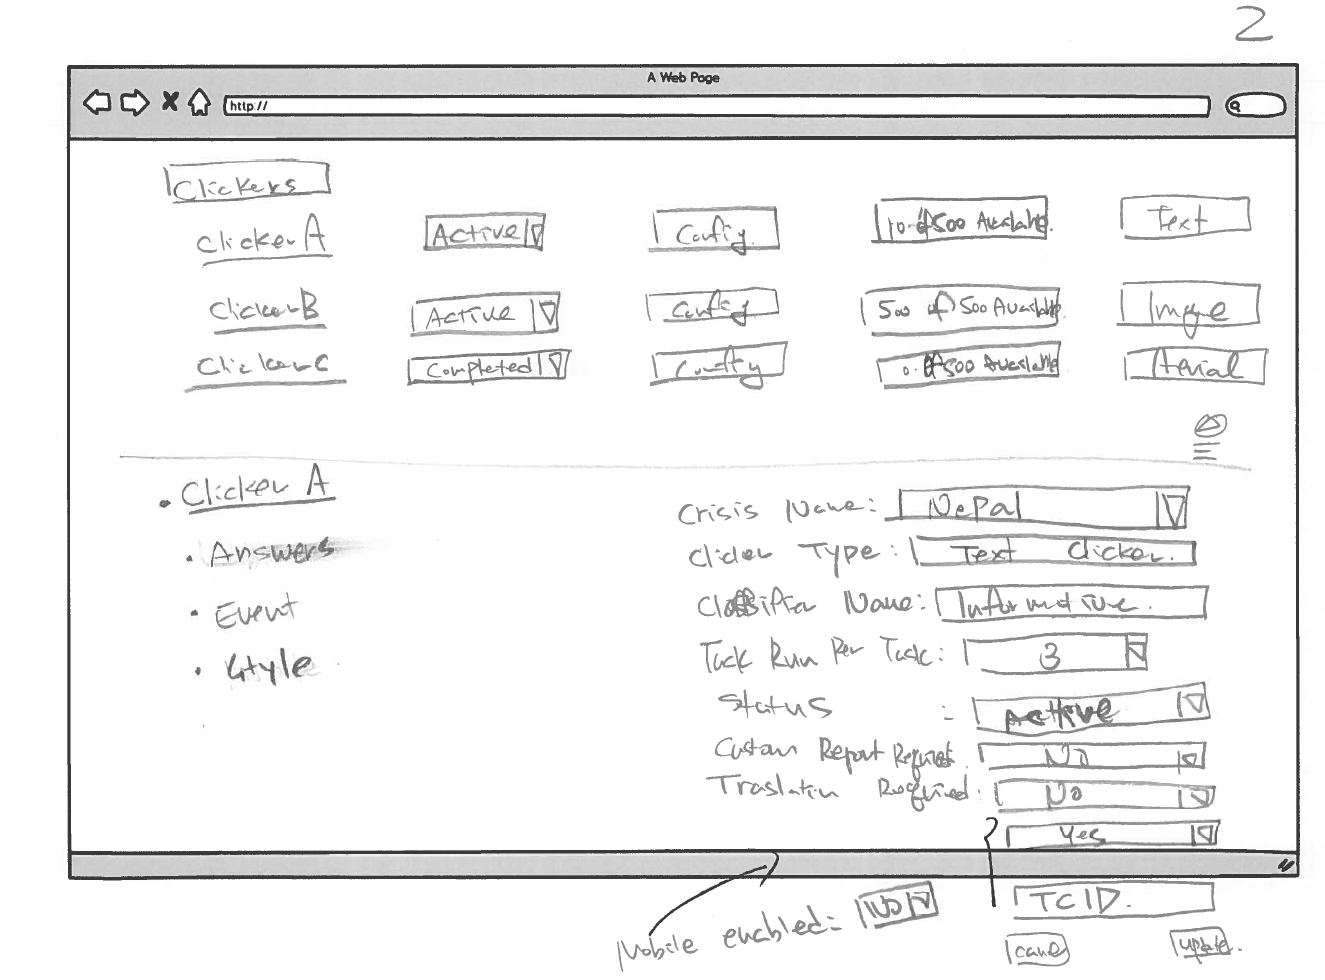 2
A Web Page
http://
Clickers
Clicker A Active Config. 10 of 500 Available. Text
Clicker B Active Config 500 of 500 Available Image
Clicker C Completed Config 0 of 500 Available Aerial
• Clicker A
• Answers
• Event
• Style
Crisis Name: Nepal
Clicker Type: Text Clicker.
Classifier Name: Informative.
Task Run Per Task: 3
Status : Active
Custom Report Request No
Traslation Required: No
Yes
Mobile enabled: NO
TCID.
Cancel update.